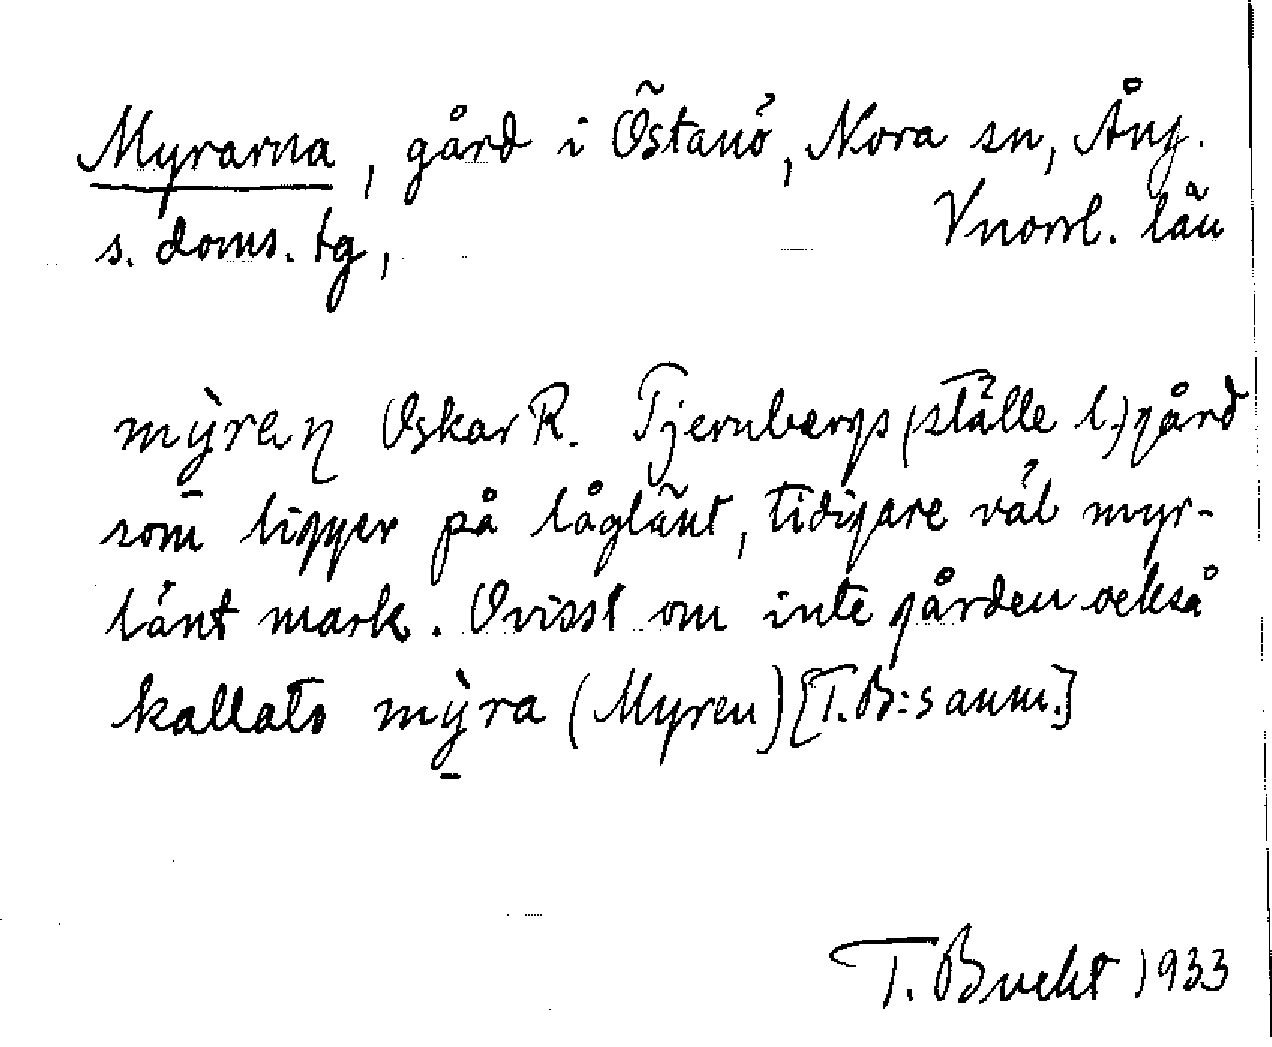 Myrarna, gård i Östanö, Nora sn, Ång.
s. doms. tg, Vnorrl. län
mỳran̥ Oskar R. Tjernbergs (ställe l.) gård
som ligger på låglänt, tidigare väl myr-
länt mark. Ovisst om inte gården också
kallats mỳra (Myren) [T.B:s anm.]
T. Bucht 1933